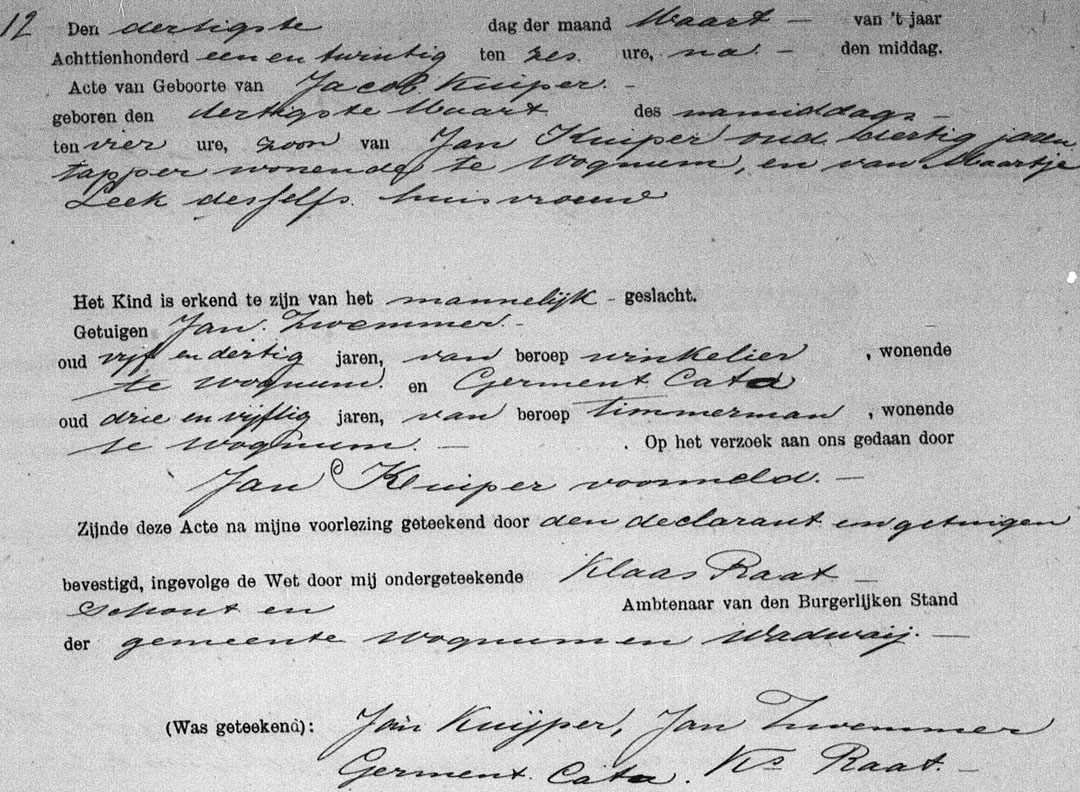 12 Den dertigste dag der maand Maart – van 't jaar
Achttienhonderd een en twintig ten zes ure, na – den middag.
Acte van Geboorte van Jacob Kuiper. –
geboren den dertigste Maart des namiddags –
ten vier ure, zoon van Jan Kuiper oud dertig jaren
tapper wonende te Wognum, en van Maartje
Leek desselfs huisvrouw
Het Kind is erkend te zijn van het mannelijk – geslacht.
Getuigen Jan Zwemmer. –
oud vijf en dertig jaren, van beroep winkelier , wonende
te Wognum. en Germent Cata
oud drie en vijftig jaren, van beroep timmerman , wonende
te Wognum. – . Op het verzoek aan ons gedaan door
Jan Kuiper voormeld. –
Zijnde deze Acte na mijne voorlezing geteekend door den declarant en getuigen
bevestigd, ingevolge de Wet door mij ondergeteekende Klaas Raat –
Schout en Ambtenaar van den Burgerlijken Stand
der gemeente Wognum en Wadwaij. –
(Was geteekend): Jan Kuijper, Jan Zwemmer
Germent Cata. Ks Raat. –